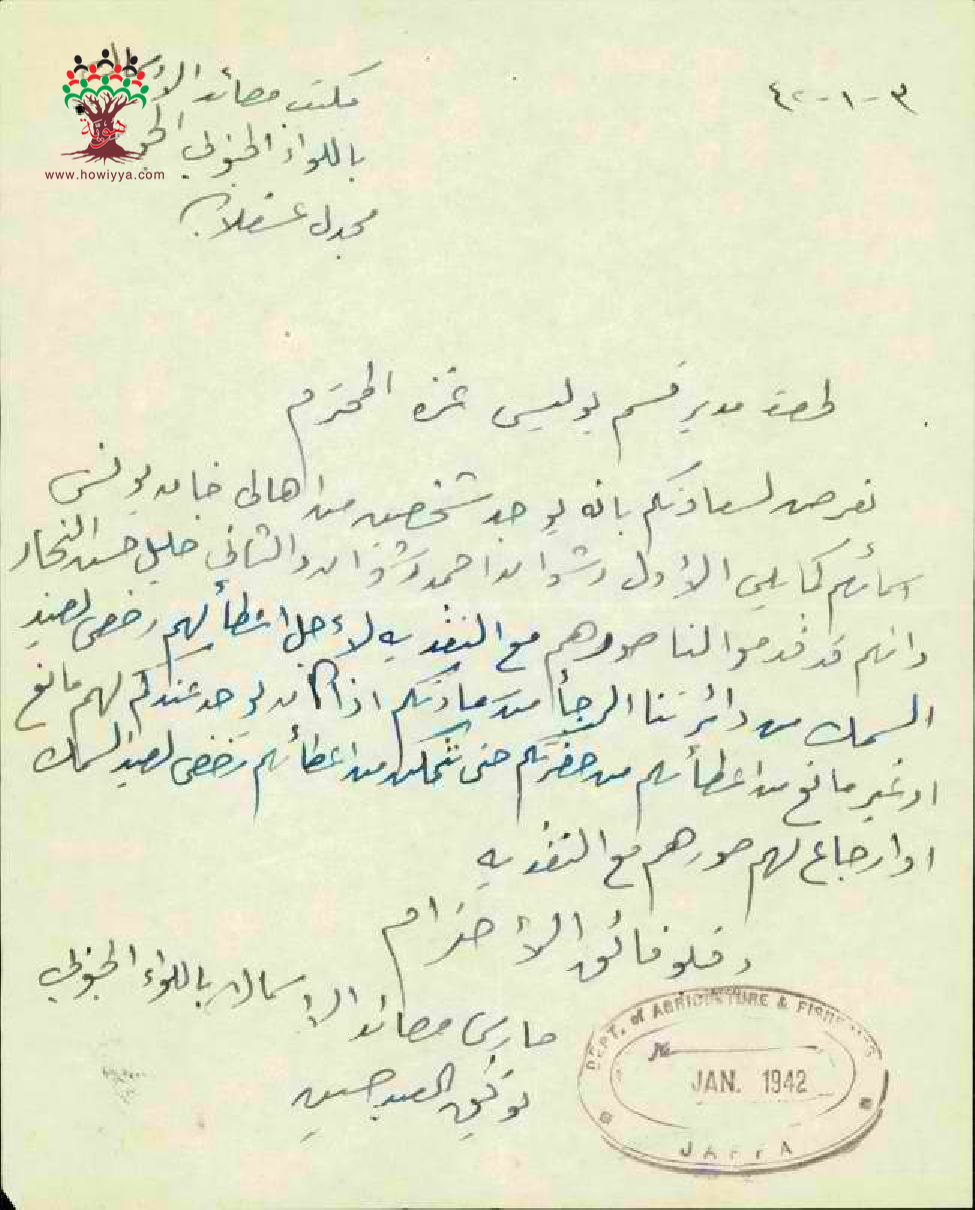 ٣-١-٤٢
مكتب مصائد الأ
باللواء الجنوبي
مجدل عسقلان
هوية
www.howiyya.com
لحضرة مدير قسم بوليس غزه المحترم
نعرض لسعادتكم بانه يوجد شخصين من اهالي خان يونس
اسمائهم كما يلي الأول رشوان احمد رشوان والثاني خليل حسن النجار
وانهم قد قدموا لنا صورهم مع النقديه لأجل اعطأئهم رخص لصيد
السمك من دائرتنا الرجأ من سعادتكم اذا كان يوجد عندكم لهم مانع
او غير مانع من اعطأئهم من حضرتكم حتى نتمكن من اعطأئهم رخص لصيد السمك
او ارجاع لهم صورهم مع النقديه
وقلو فائق الأحترام
حارس مصائد الاسماك باللواء الجنوبي
توفيق العبد حسين
DEPT. of AGRICULTURE & FISHERIES
№
JAN. 1942
JAFFA